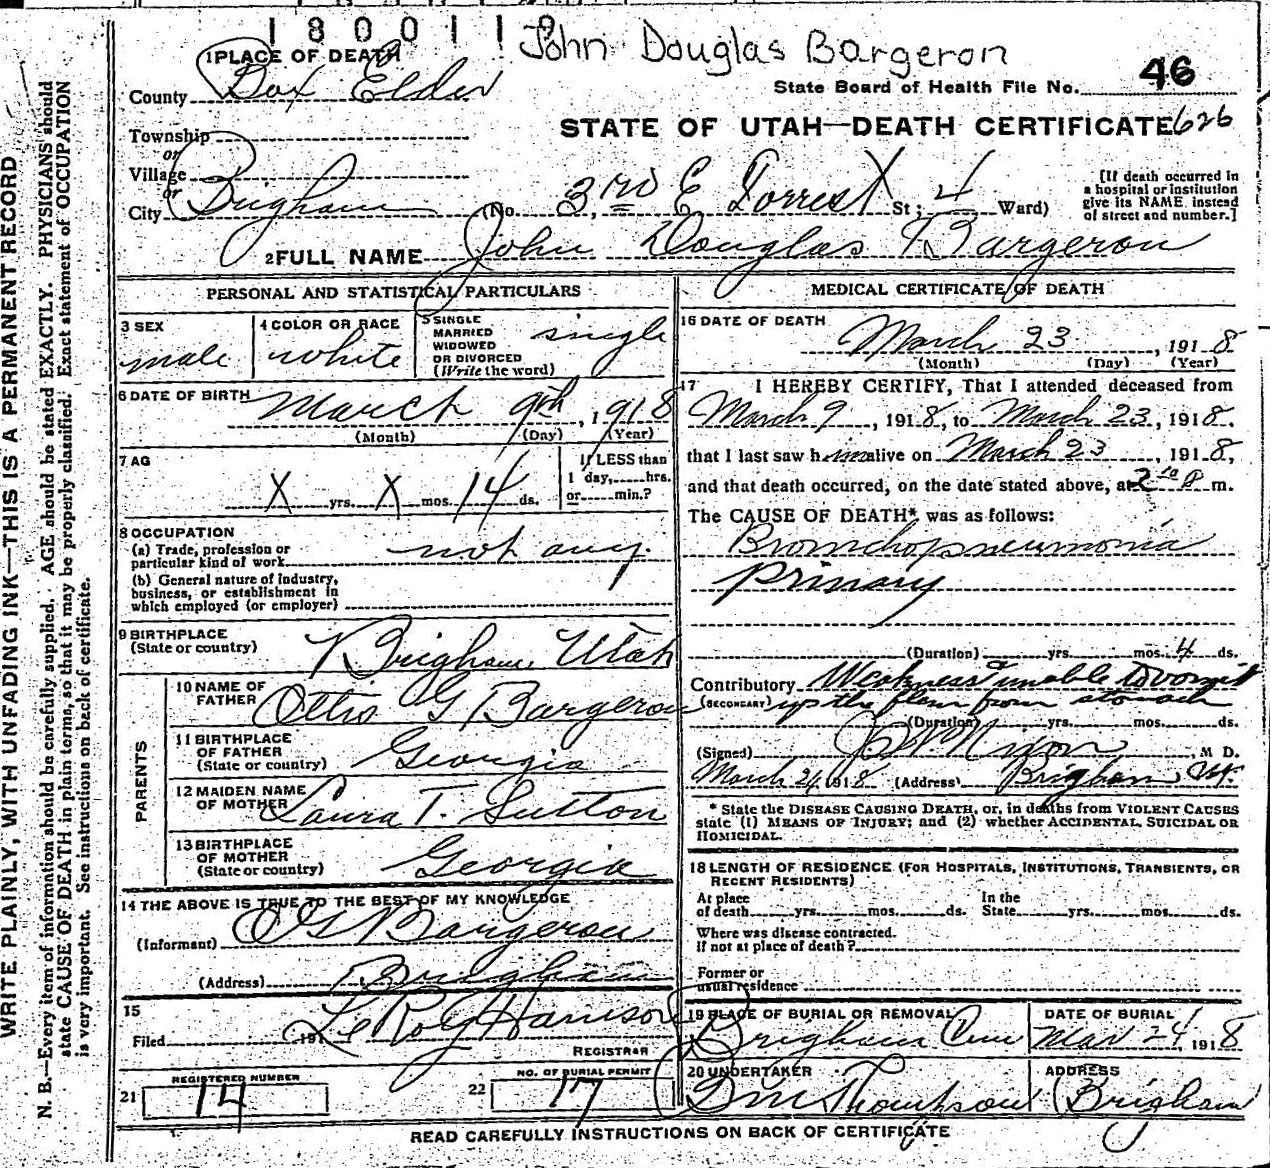 1800110
John Douglas Bargeron
1 PLACE OF DEATH
County Box Elder
State Board of Health File No. 46
Township
or
Village
or
City Brigham
STATE OF UTAH—DEATH CERTIFICATE 626
(No. 3rd E Forrest St; 4 Ward)
[If death occurred in
a hospital or institution
give its NAME, instead
of street and number.]
2 FULL NAME John Douglas Bargeron
PERSONAL AND STATISTICAL PARTICULARS
3 SEX
male
4 COLOR OR RACE
white
5 SINGLE
MARRIED
WIDOWED
OR DIVORCED
(Write the word)
single
6 DATE OF BIRTH
March 9th, 1918
(Month) (Day) (Year)
7 AG
X yrs. X mos. 14 ds.
If LESS than
1 day, hrs.
or min.?
8 OCCUPATION
(a) Trade, profession or
particular kind of work not any.
(b) General nature of industry,
business, or establishment in
which employed (or employer)
9 BIRTHPLACE
(State or country) Brigham Utah
PARENTS
10 NAME OF
FATHER Ottis G Bargeron
11 BIRTHPLACE
OF FATHER
(State or country) Georgia
12 MAIDEN NAME
OF MOTHER Laura T. Sutton
13 BIRTHPLACE
OF MOTHER
(State or country) Georgia
14 THE ABOVE IS TRUE TO THE BEST OF MY KNOWLEDGE
(Informant) O G Bargeron
(Address) Brigham
15
Filed 191 Le Roy Harrison
REGISTRAR
21 REGISTERED NUMBER
14
22 NO. OF BURIAL PERMIT
17
MEDICAL CERTIFICATE OF DEATH
16 DATE OF DEATH
March 23, 1918
(Month) (Day) (Year)
17 I HEREBY CERTIFY, That I attended deceased from
March 9, 1918, to March 23, 1918.
that I last saw him alive on March 23, 1918,
and that death occurred, on the date stated above, at 2 m.
The CAUSE OF DEATH* was as follows:
Bronchopneumonia
Primary
(Duration) yrs. mos. 4 ds.
Contributory Weakness unable to vomit
(SECONDARY) up the from stomach
(Duration) yrs. mos. ds.
(Signed) Nixon, M D.
March 24, 1918 (Address) Brigham, Ut.
* State the DISEASE CAUSING DEATH, or, in deaths from VIOLENT CAUSES
state (1) MEANS OF INJURY; and (2) whether ACCIDENTAL, SUICIDAL OR
HOMICIDAL.
18 LENGTH OF RESIDENCE (FOR HOSPITALS, INSTITUTIONS, TRANSIENTS, OR
RECENT RESIDENTS)
At place In the
of death yrs. mos. ds. State yrs. mos. ds.
Where was disease contracted.
if not at place of death?
Former or
usual residence
19 PLACE OF BURIAL OR REMOVAL
Brigham Cem
DATE OF BURIAL
Mar 24, 1918
20 UNDERTAKER
Thompson
ADDRESS
Brigham
READ CAREFULLY INSTRUCTIONS ON BACK OF CERTIFICATE
WRITE PLAINLY, WITH UNFADING INK—THIS IS A PERMANENT RECORD
N. B.—Every item of information should be carefully supplied. AGE should be stated EXACTLY. PHYSICIANS should
state CAUSE OF DEATH in plain terms, so that it may be properly classified. Exact statement of OCCUPATION
is very important. See instructions on back of certificate.